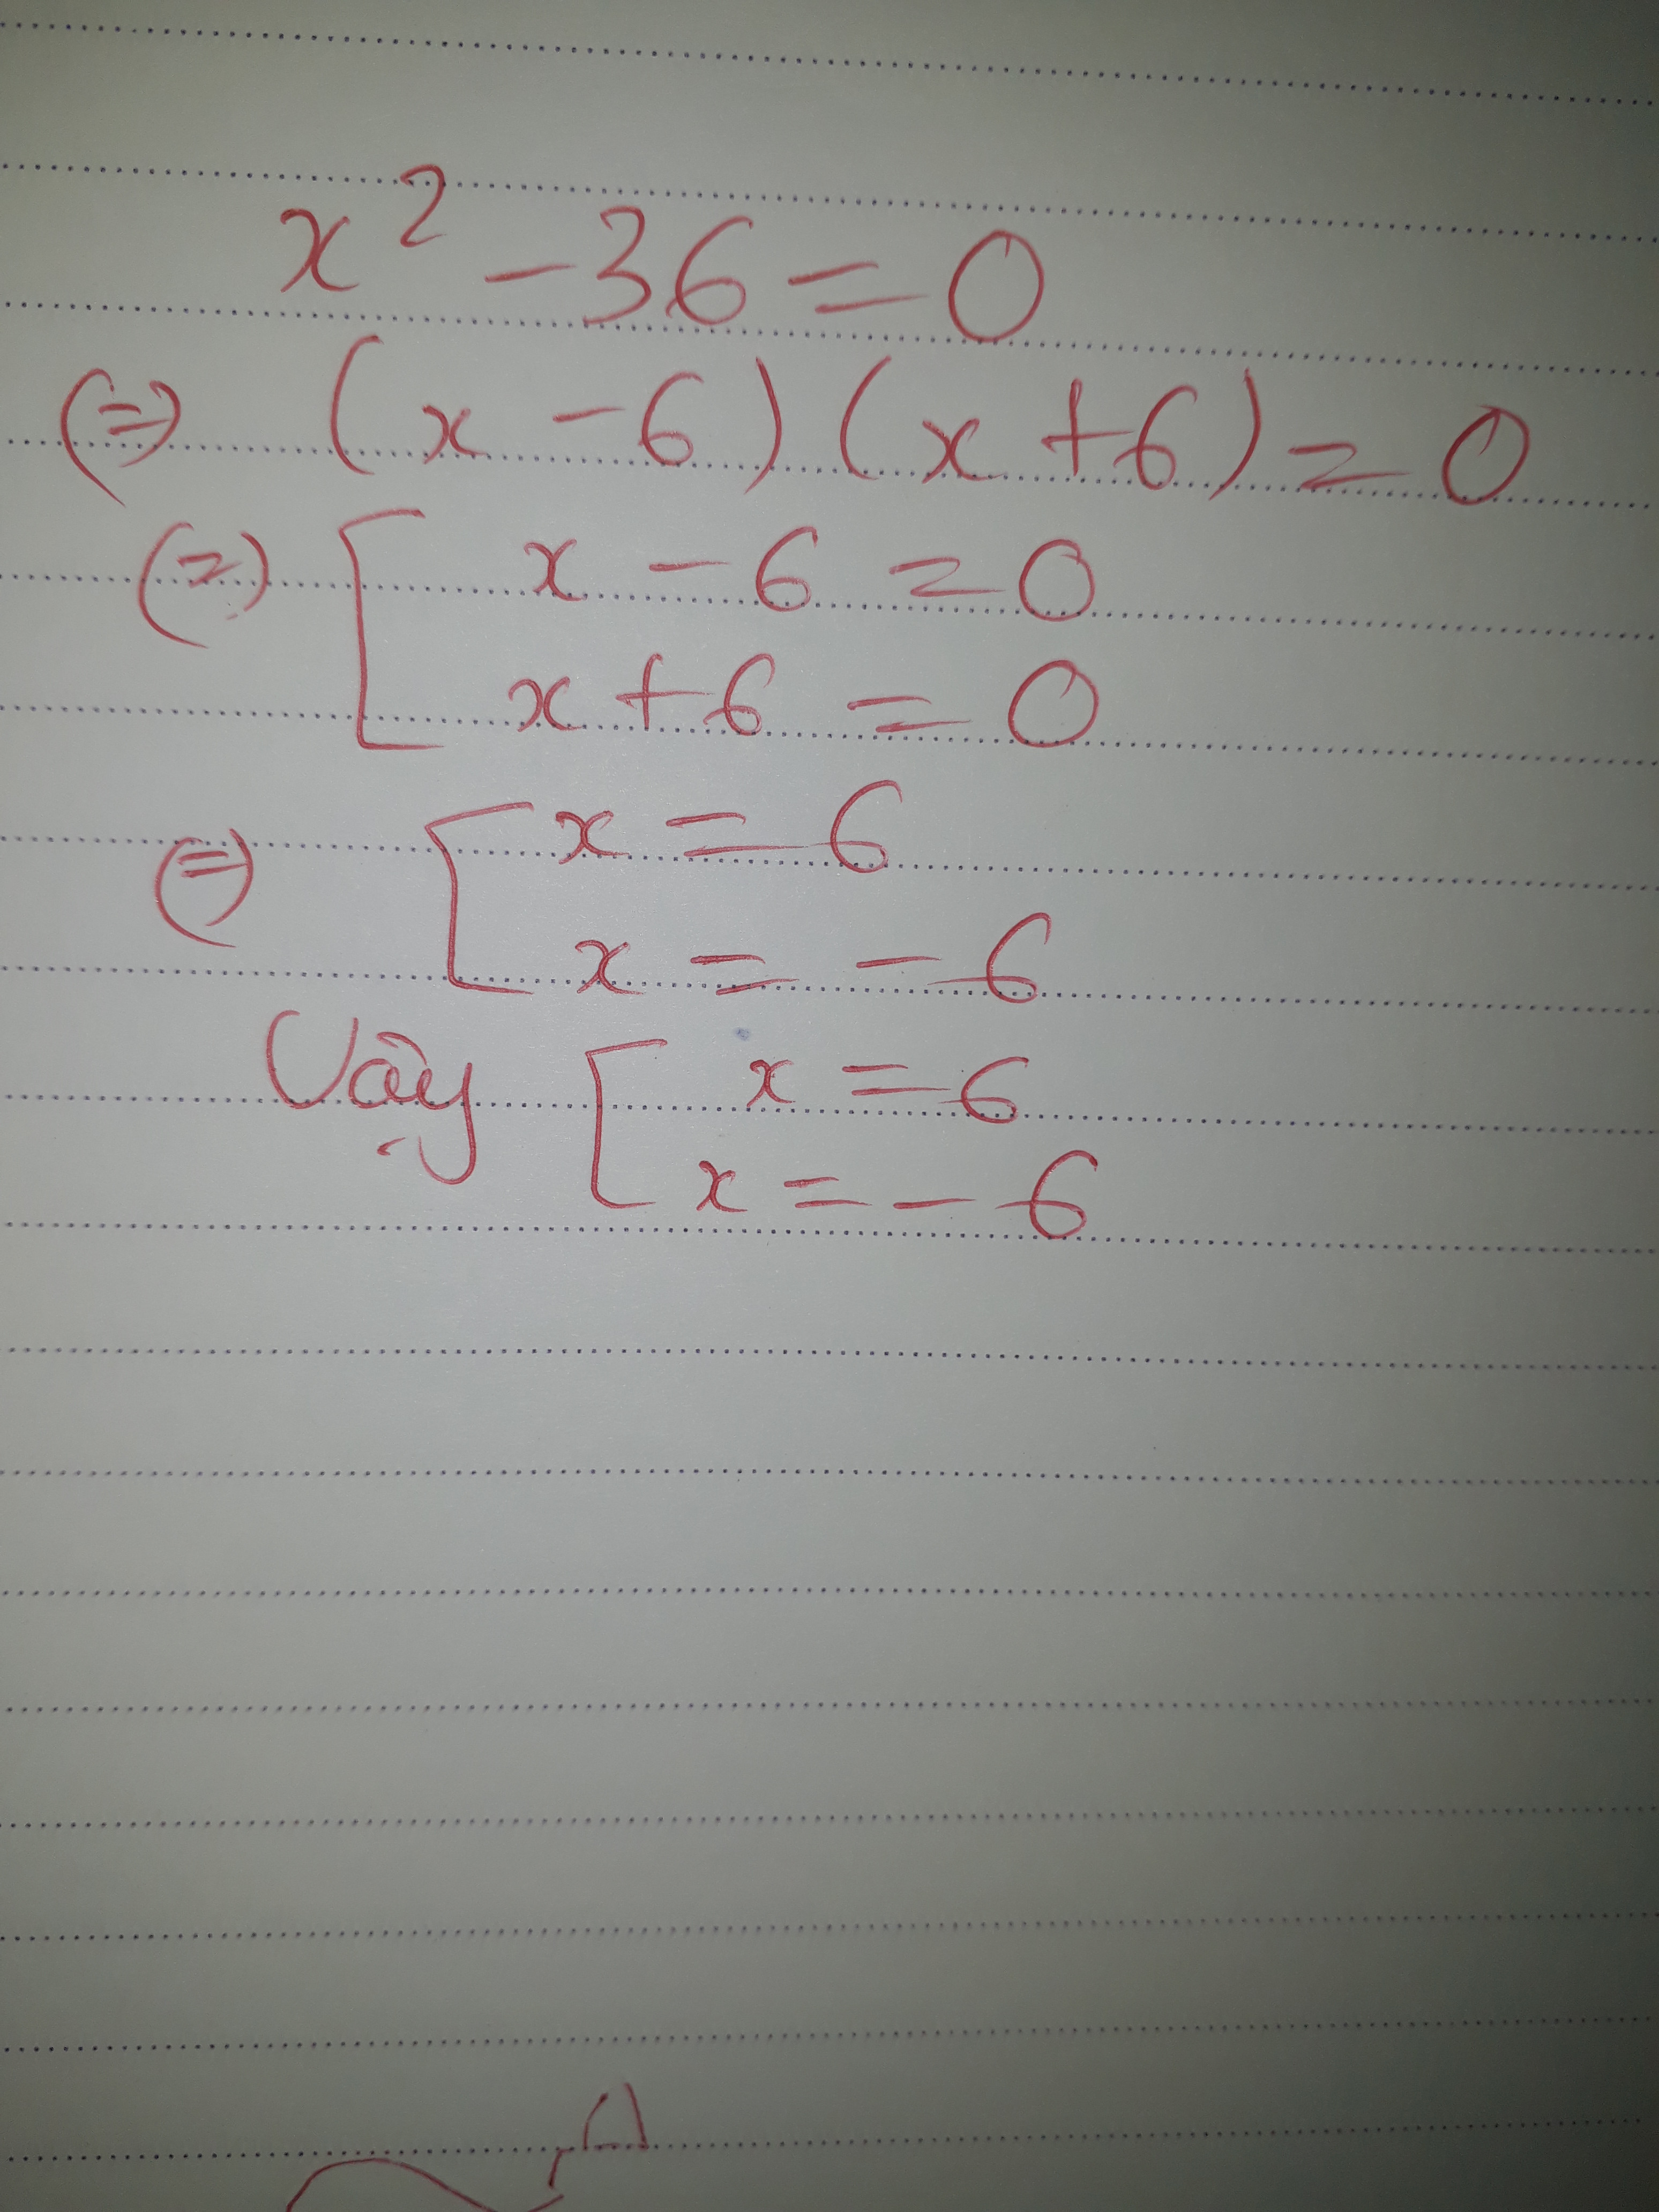 x² - 36 = 0
(=) (x - 6)(x + 6) = 0
(=) [ x - 6 = 0
x + 6 = 0
(=) [ x = 6
x = - 6
Vậy [ x = 6
x = - 6